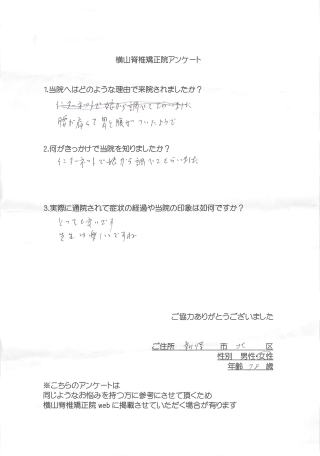 横山脊椎矯正院アンケート
1.当院へはどのような理由で来院されましたか？
腰が痛くて
2.何がきっかけで当院を知りましたか？
インターネットで娘から
3.実際に通院されて症状の経過や当院の印象は如何ですか？
とっても良いです
先生は優しいですね
ご協力ありがとうございました
ご住所 新潟 市 北 区
性別 男性・女性
年齢 歳
※こちらのアンケートは
同じようなお悩みを持つ方に参考にさせて頂くため
横山脊椎矯正院 web に掲載させていただく場合が有ります